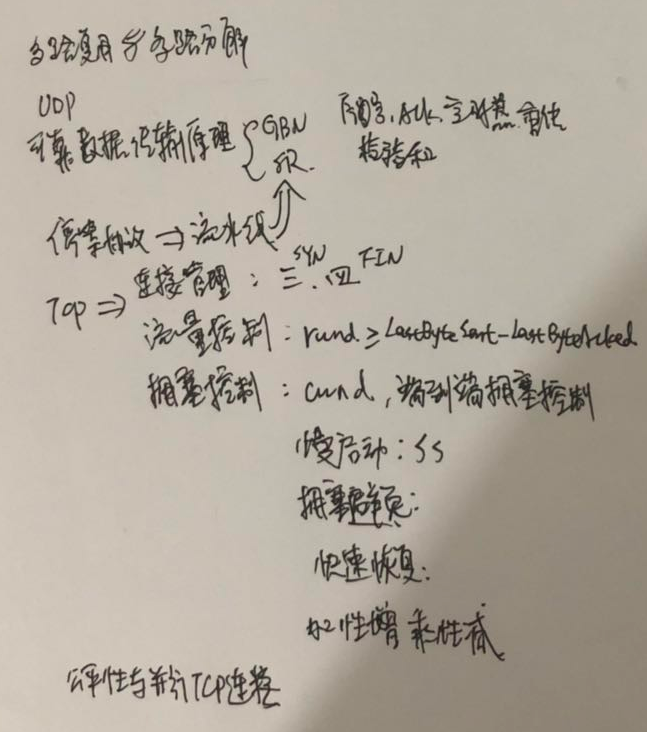 多路复用与多路分解
UDP
可靠数据传输原理 { GBN SR. 序号, Ack, 定时器, 重传 检验和
停等协议 ⇒ 流水线
TCP ⇒ 连接管理: 三SYN. 四FIN
流量控制: rwnd ≥ LastByteSent-LastByteAcked
拥塞控制: cwnd, 端到端拥塞控制
慢启动: SS
拥塞避免:
快速恢复:
加性增 乘性减
公平性与并行TCP连接